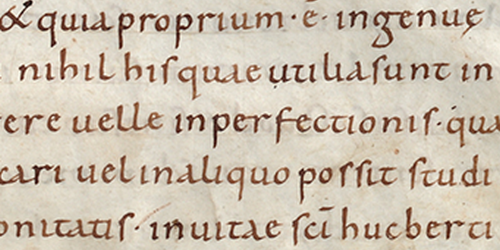 & quia proprium · e · ingenuę
nihil his quae utilia sunt in
ere uelle inperfectionis · qua
cari uel in aliquo possit studi
onitatis · in uitae sc̄i hucberti